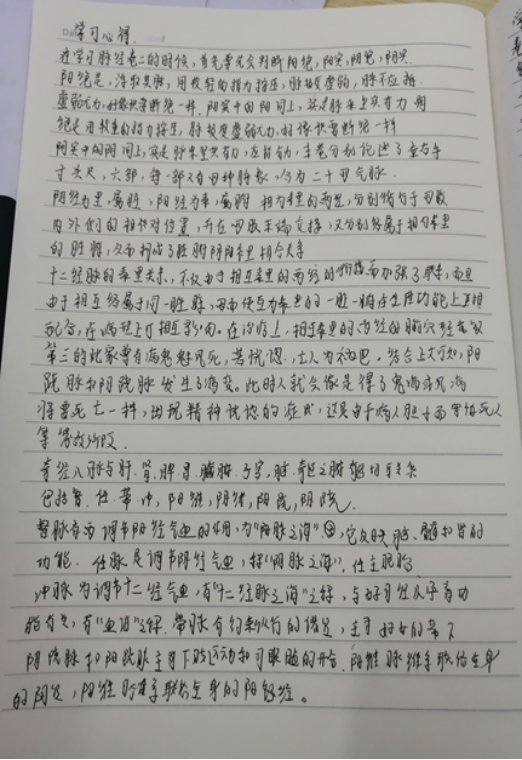 学习心得.
在学习脉经卷二的时候，首先要学会判断阳绝，阳实，阴绝，阴实
阳绝是，浮取其脉，用较轻的指力按压，脉极度虚弱，脉不应指
虚弱无力，好像快要断绝一样. 阳实中的阳同上，实是脉来坚实有力 阴
绝是用较重的指力按压，脉极度虚弱无力，好像快要断绝一样
阴实中的阴同上，实是脉来坚实有力，左右有力，本卷分别论述了左右手
寸关尺，六部，每一部又有四种脉象，分为二十四气脉.
阴经为里，属脏，阳经为表，属腑 相为表里的两经，分别循行于四肢
内外侧的相对位置，并在四肢末端交接，又分别络属于相为表里
的脏腑，从而构成了脏腑阴阳表里相合关系
十二经脉的表里关系，不仅由于相互表里的两经的衔接而加强了联系，而且
由于相互络属于同一脏腑，因而使互为表里的一脏一腑在生理功能上互相
配合，在病理上可相互影响。在治疗上，相互表里的两经的腧穴经常
第三的此家曾有病鬼魅风死，苦恍惚，亡人为祸也. 结合上文可知，阳
跷脉和阴跷脉发生了病变。此时人就会像是得了鬼病并
将要死亡一样，出现精神恍惚的症状，这是由于病人胆小而害怕死人
等等放所致.
奇经八脉与肝. 肾. 脾. 胃. 脑. 子宫，脑. 奇恒之腑能切关系
包括督. 任. 带. 冲，阳维，阴维，阳跷，阴跷.
督脉有着调节阳经气血的作用，为“阳脉之海”，它反映脑、髓和肾的
功能. 任脉是调节阴经气血，称“阴脉之海”，任主胞胎
冲脉为调节十二经气血，有“十二经脉之海”之称，与妇女月经及孕育功
能有关，有“血海”之称. 带脉有约束纵行的诸经，主司妇女的带下
阴跷脉和阳跷脉主司下肢运动和司眼睑的开合. 阴维脉维系联络全身
的阴经，阳维脉维系联络全身的阳经。